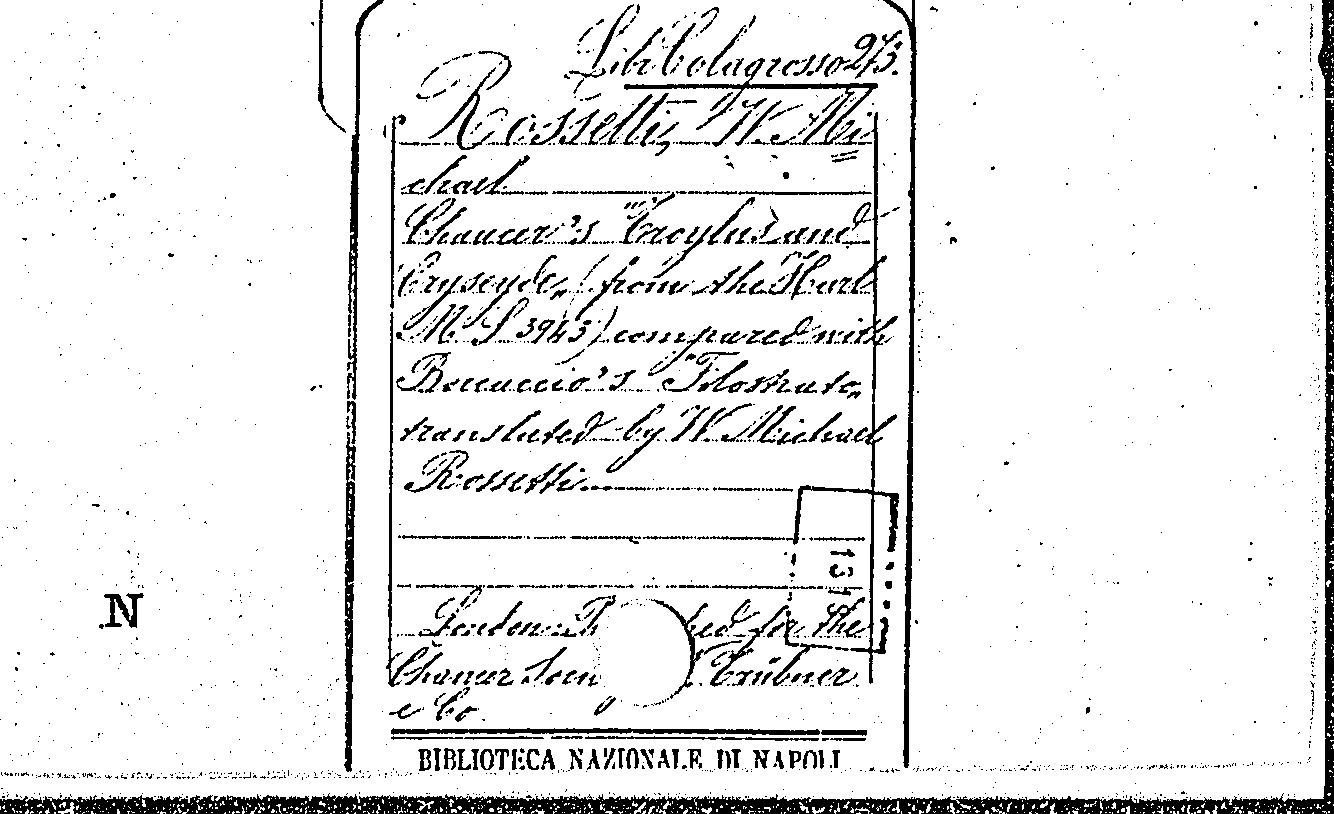 Lib. Colagrosso 273.
Rossetti, W. Mi
chael
Chaucer's "Troylus and
Cryseyde„ (from the Harl
M. S 3943) compared with
Boccaccio's "Filostrato„
translated by W. Michael
Rossetti
131
N
London for the
Chaucer Trübner
e Co.
BIBLIOTECA NAZIONALE DI NAPOLI